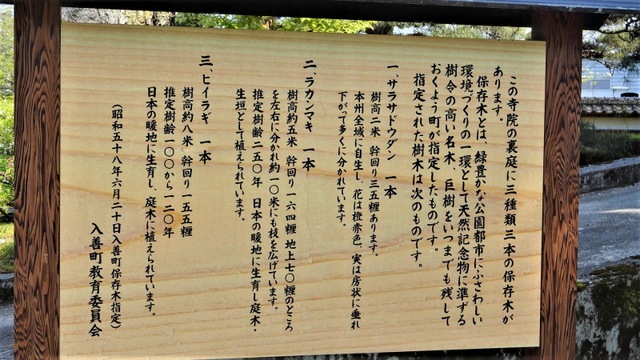 この寺院の裏庭に三種類三本の保存木が
あります。
保存木とは、緑豊かな公園都市にふさわしい
環境づくりの一環として天然記念物に準ずる
樹令の高い名木、巨樹をいつまでも残して
おくよう町が指定したものです。
指定された樹木は次のものです。
一、サラサドウダン 一本
樹高二米 幹回り三五糎あります。
本州全域に自生し、花は橙赤色、実は房状に垂れ
下がって多くに分かれています。
二、ラカンマキ 一本
樹高約五米 幹回り一六四糎 地上七〇糎のところ
を左右に分かれ約一〇米にも枝を広げています。
推定樹齢二五〇年 日本の暖地に生育し庭木・
生垣として植えられています。
三、ヒイラギ 一本
樹高約八米 幹回り一五五糎
推定樹齢一〇〇から一二〇年
日本の暖地に生育し、庭木に植えられています。
(昭和五十八年六月二十日入善町保存木指定)
入善町教育委員会